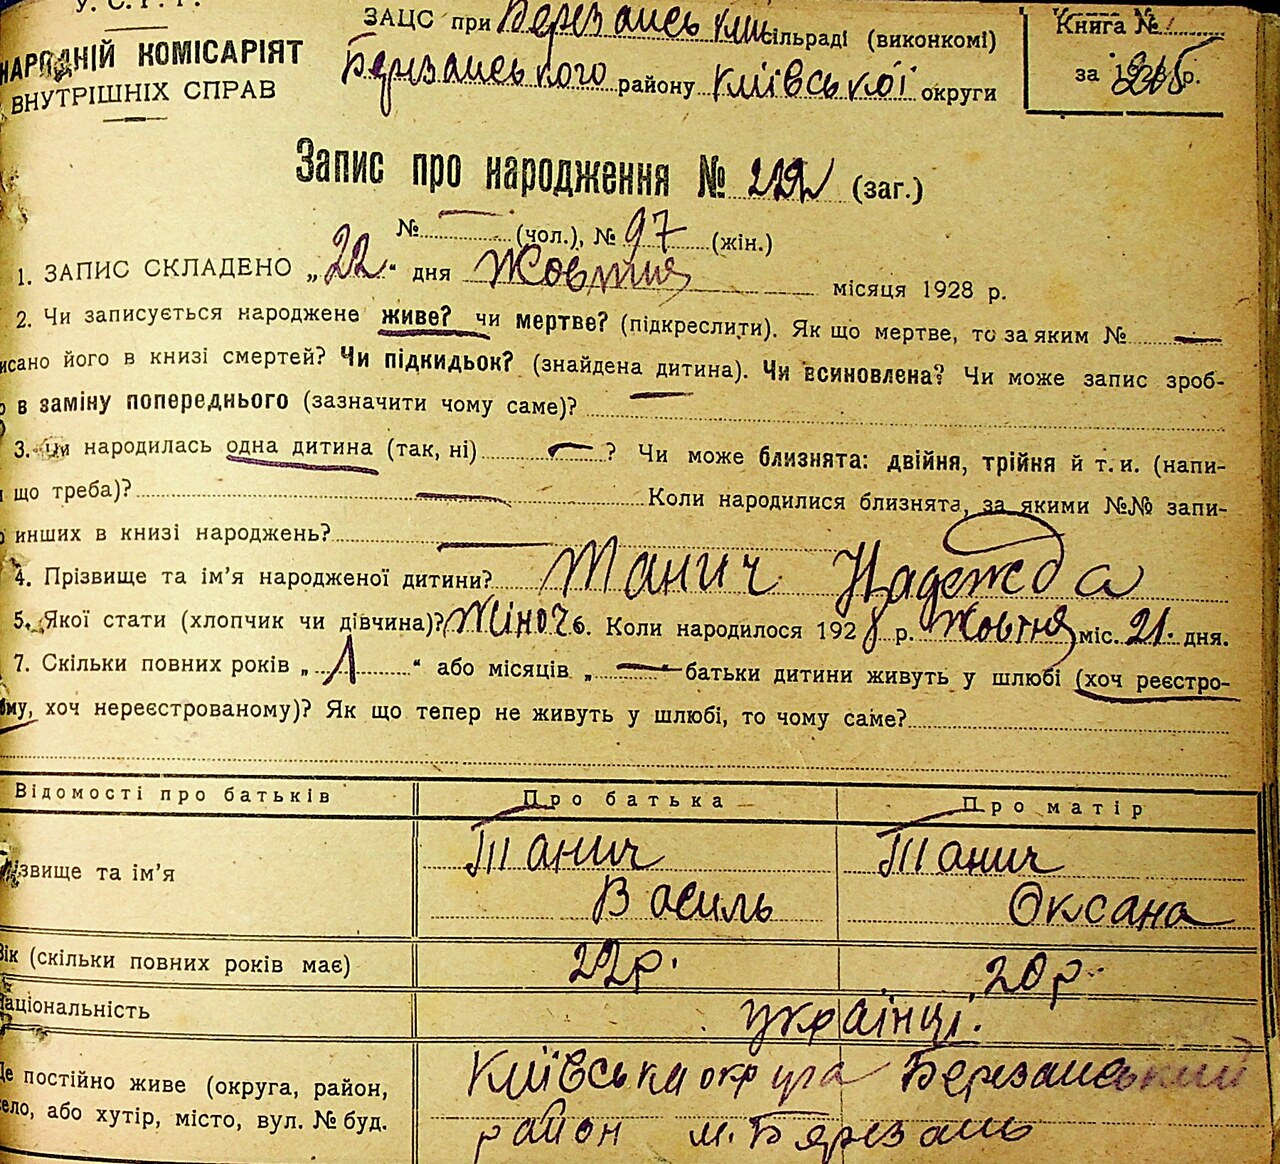 У. С. Р. Р.
НАРОДНІЙ КОМІСАРІЯТ
ВНУТРІШНІХ СПРАВ
ЗАЦС при Березанській сільраді (виконкомі)
Березанського району Київської округи
Книга №
за 1928 р.
Запис про народження № (заг.)
№ — (чол.), № 97 (жін.)
1. ЗАПИС СКЛАДЕНО „22“ дня Жовтня місяця 1928 р.
2. Чи записується народжене живе? чи мертве? (підкреслити). Як що мертве, то за яким № —
исано його в книзі смертей? Чи підкидьок? (знайдена дитина). Чи всиновлена? Чи може запис зроб-
о в заміну попереднього (зазначити чому саме)? —
3. Чи народилась одна дитина (так, ні) — ? Чи може близнята: двійня, трійня й т. и. (напи-
що треба)? — Коли народилися близнята, за якими №№ запи-
о инших в книзі народжень? —
4. Прізвище та ім’я народженої дитини? Танич Надежда
5. Якої стати (хлопчик чи дівчина)? Жіноч 6. Коли народилося 1928 р. Жовтня міс. 21. дня.
7. Скільки повних років „1“ або місяців „— батьки дитини живуть у шлюбі (хоч реєстро-
ому, хоч нереєстрованому)? Як що тепер не живуть у шлюбі, то чому саме?
Відомості про батьків Про батька Про матір
Прізвище та ім’я Танич Василь Танич Оксана
Вік (скільки повних років має) 22 р. 20 р.
Національність українці.
Де постійно живе (округа, район, Київська округа Березанський
село, або хутір, місто, вул. № буд. район м. Березань